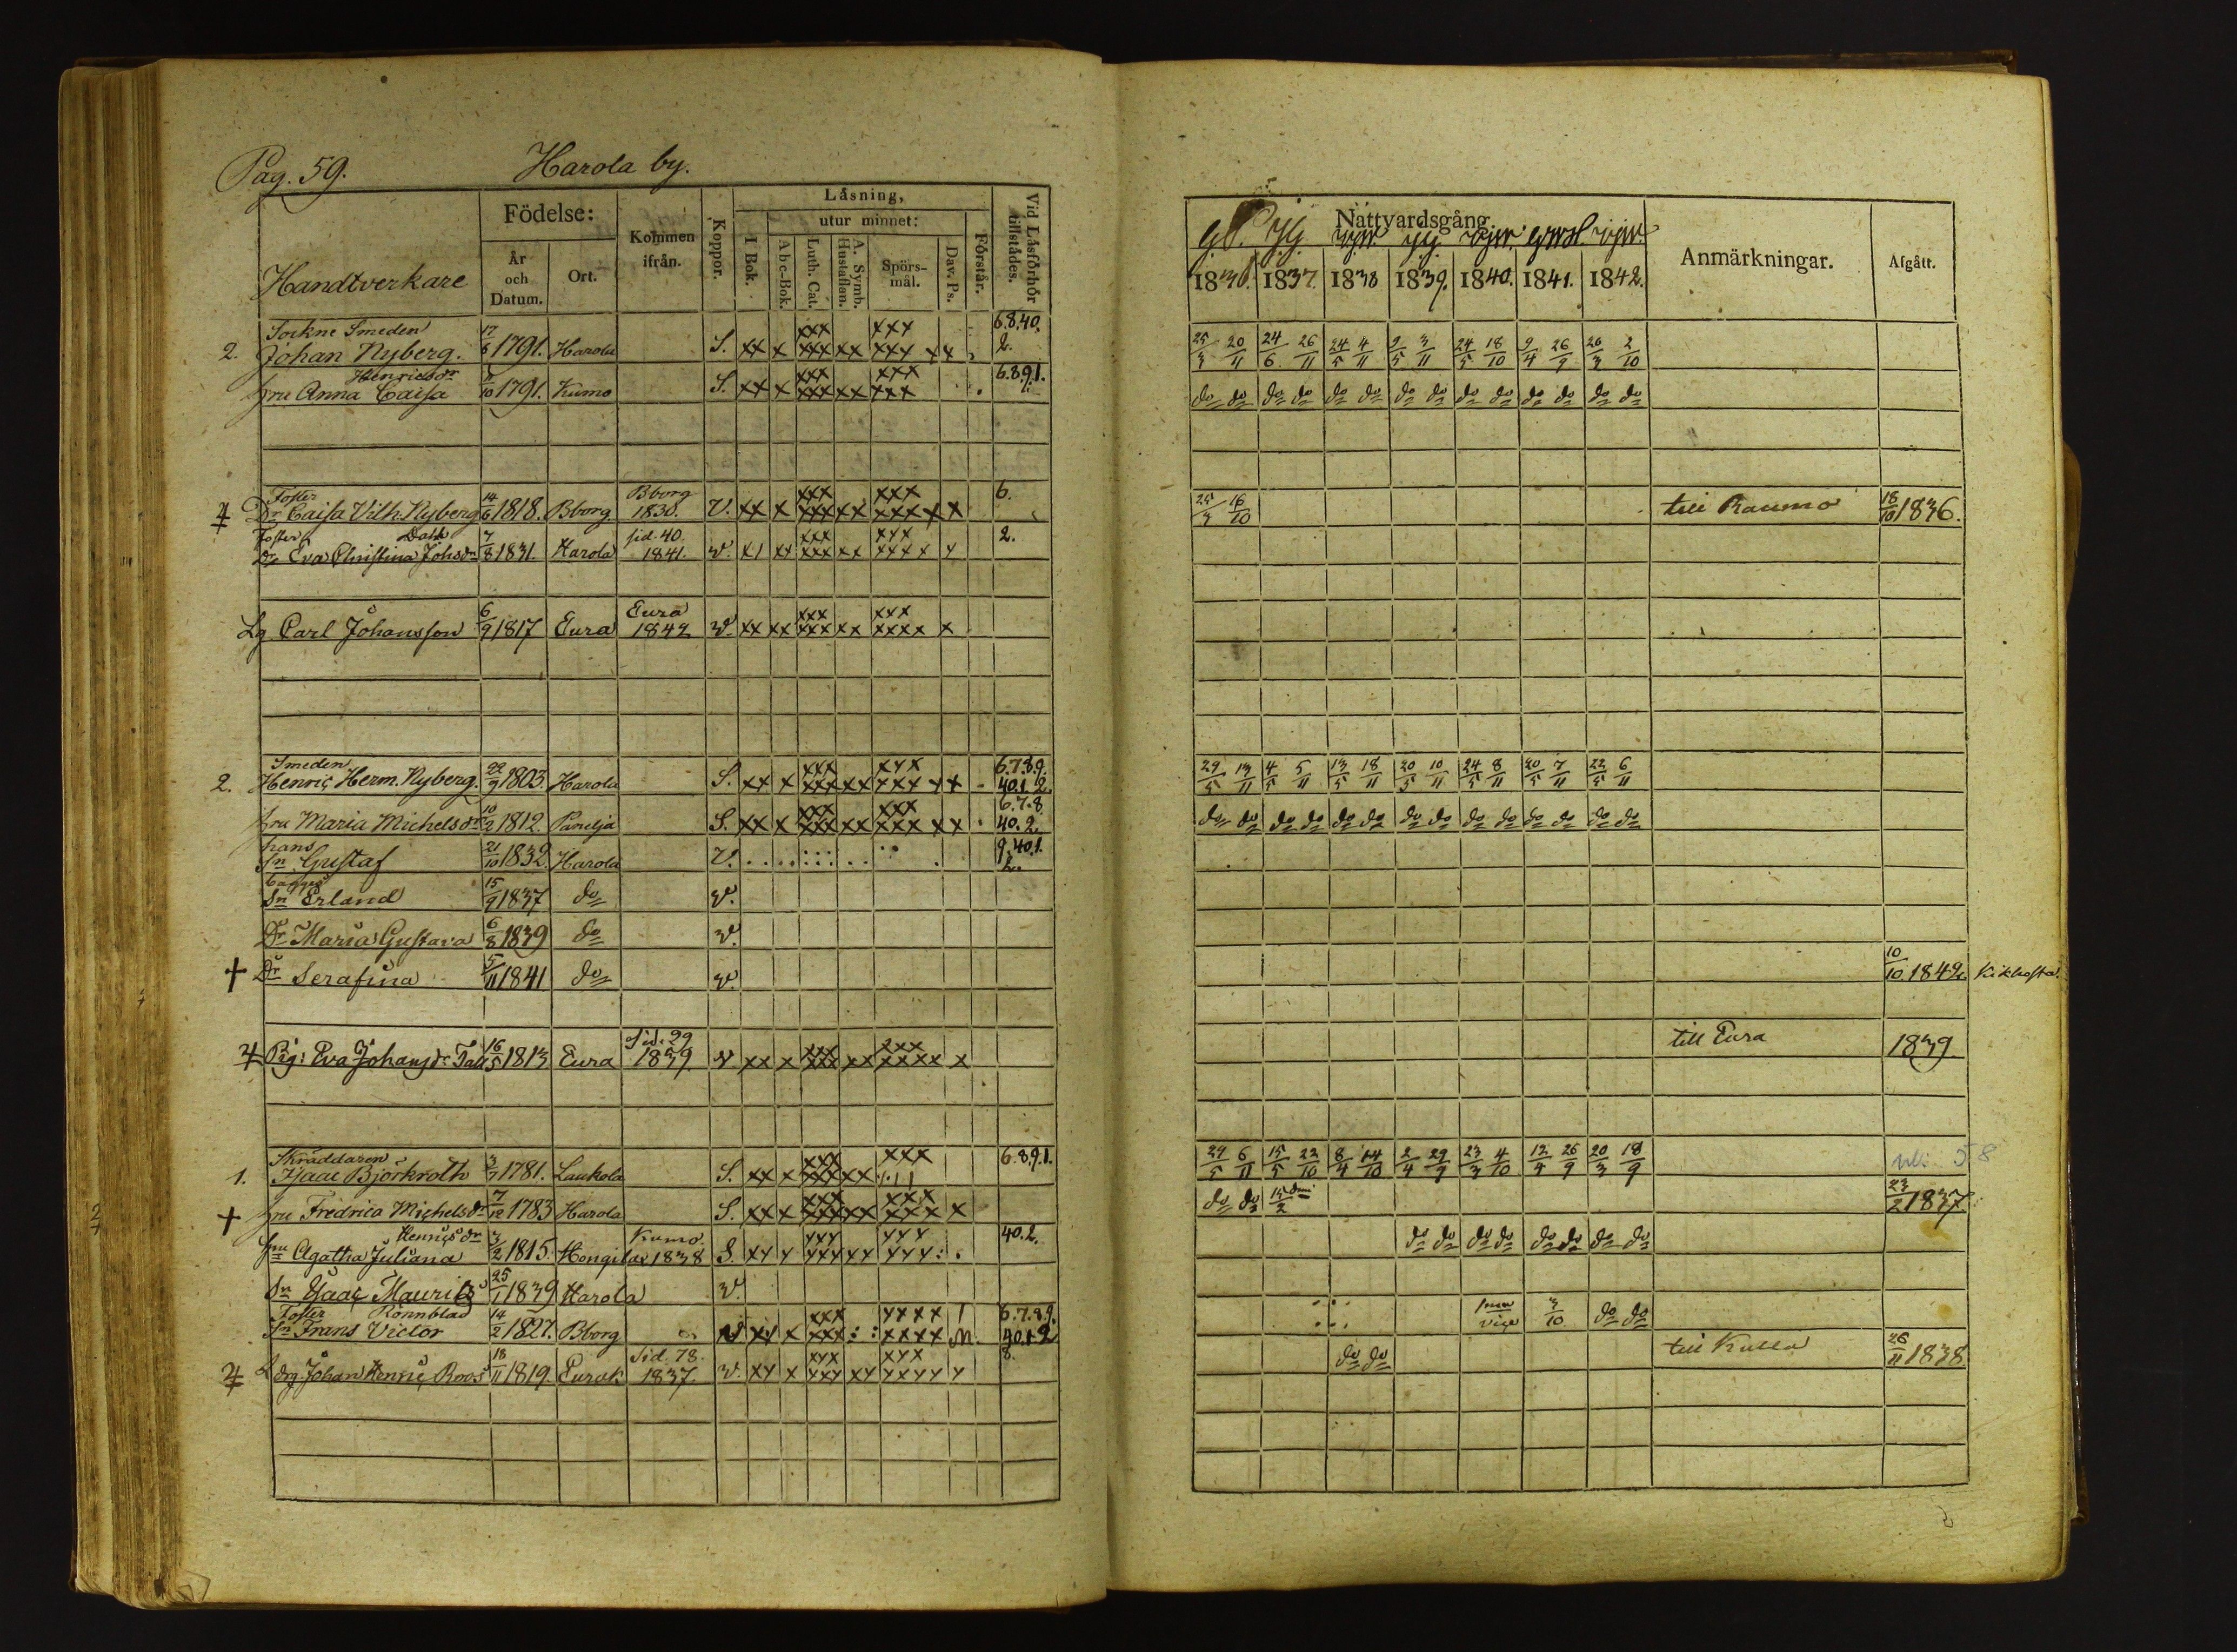 Pag. 59. Harola by.
Handtverkare
Födelse:
År och Datum.
Ort.
Kommen ifrån.
Koppor.
Läsning,
I Bok.
utur minnet:
Abc-Bok.
Luth. Cat.
A. Symb. Hustaflan.
Spörsmål.
Dav. Ps.
Förstår.
Vid Läsförhör tillstädes.
Nattvardsgång
1836. 1837. 1838 1839. 1840. 1841. 1842.
Anmärkningar.
Afgått.
Sockne Smeden 17 xxx xxx 6.8.40.
2. Johan Nyberg. 6 1791. Harola S. xx x xxx xx xxx xx 2. 25/3 20/11 24/6 26/11 24/5 4/11 9/5 3/11 24/5 18/10 9/4 26/9 20/3 2/10
Henricsdr xxx xxx 6.8.9.1.
hru Anna Caisa 10 1791. Kumo S. xx x xxx xx xxx do do do do do do do do do do do do do do
Foster 14 Bborg xxx xxx 6.
Dr Caisa Vilh. Nyberg 6 1818. Bborg. 1830. V. xx x xxx xx xxx x x 25/3 16/10 till Raumo 18/10 1836.
Foster 7 sid. 40. xxx xxx 2.
Dr Eva Christina Johsdr 8 1831. Harola 1841. v.
6 Eura xxx xxx
Lg Carl Johansson 9 1817 Eura 1842 v. xx xx xxx xx xxxx x
Smeden 22 xxx xxx 6.7.8.9.
2. Henric Herm. Nyberg. 9 1803. Harola S. xx x xxx xx xxx xx 40.1.2. 29/5 13/11 4/5 5/11 13/5 18/11 20/5 10/11 24/5 8/11 20/5 7/11 22/5 6/11
10 xxx xxx 6.7.8.
hru Maria Michelsdr 2 1812. Panelja S. xx x xxx xx xxx xx 40.2. do do do do do do do do do do do do do do
hans 21 9.40.1.
Sn Gustaf 10 1832. Harola V. 2.
begges 15
Sn Erland 9 1837 do v.
Dr Maria Gustava 6/8 1839 do v.
† Dr Serafina 5/11 1841 do v. 10/10 1842. Kikhosta.
16 Sid. 29 xxx xxx
Pig: Eva Johansdr Tall 5 1813 Eura 1839 v. xx x xxx xx xxxx x till Eura 1839.
Skräddaren 3 xxx xxx 6.8.9.1.
1. Isaac Björkroth 7 1781. Laukola S. xx x xxx xx 29/5 6/11 15/5 22/10 8/4 14/10 2/4 29/9 23/3 4/10 12/4 26/9 20/3 18/9 58
7 xxx xxx
† hru Fredrica Michelsdr 12 1783 Harola S. xx x xxx xx xxx x do do 23/2 1837.
Henricsdr 3 Kumo. xxx xxx 40.2.
hru Agatha Juliana 2 1815. Hongila 1838 S. xx x xxx xx xxx do do do do do do do do
Sn Isaac Maurits 25/1 1839 Harola v.
Foster Rönnblad 14 xxx xxxx 6.7.8.9.
Sn Frans Victor 2 1827. Bborg v xx x xxx xxxx 40.1.2 3/10 do do
18 Sid. 78. xxx xxx 8.
Ldrg. Johan Henric Roos 11 1819. Eurak 1837. v. xx x xxx xx xxxx x do do till Kulla 26/11 1838.